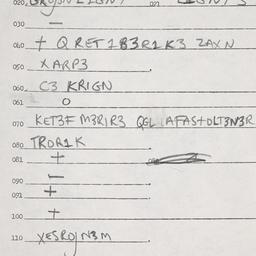 030 –
040 + Q RET1B3R1K3 ZAXN
050 XARP3
060 C3 KRIGN
061 O
070 KET3F M3R1R3 QGL AFAS+OLT3N3R
080 TROR1K
081 +
090 –
091 +
100 +
110 YESROJN3M